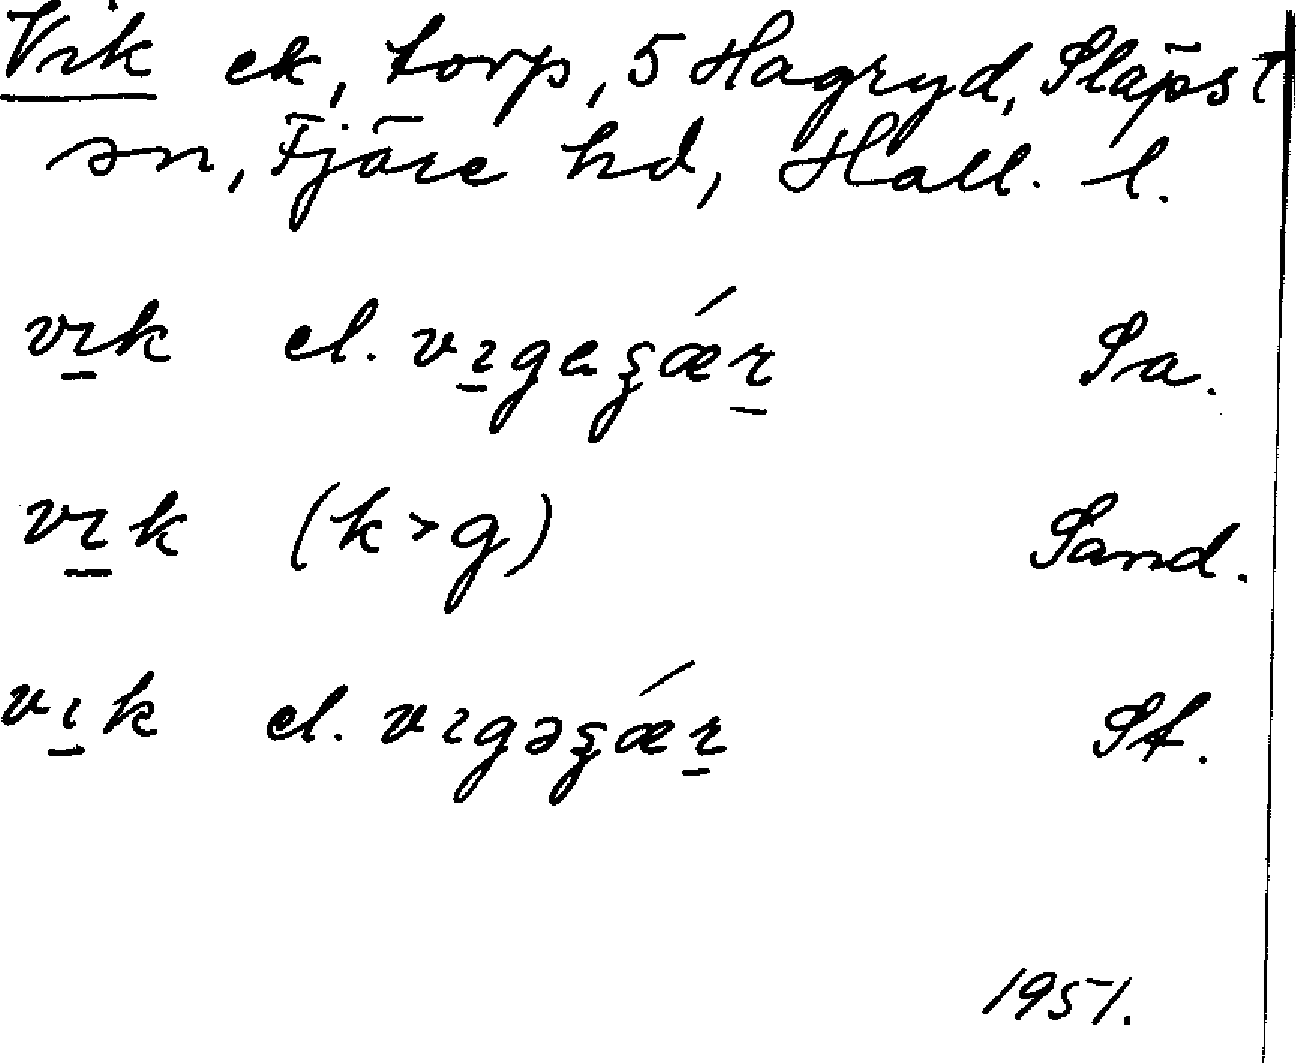 Vik ek, torp, 5 Hagryd, Släps
sn, Fjäre hd, Hall. l.
vɪk el. vɪgaʂǽɽ Sa.
vɪk (k>g) Sand.
vɪk el. vɪgəʂǽɽ St.
1951.